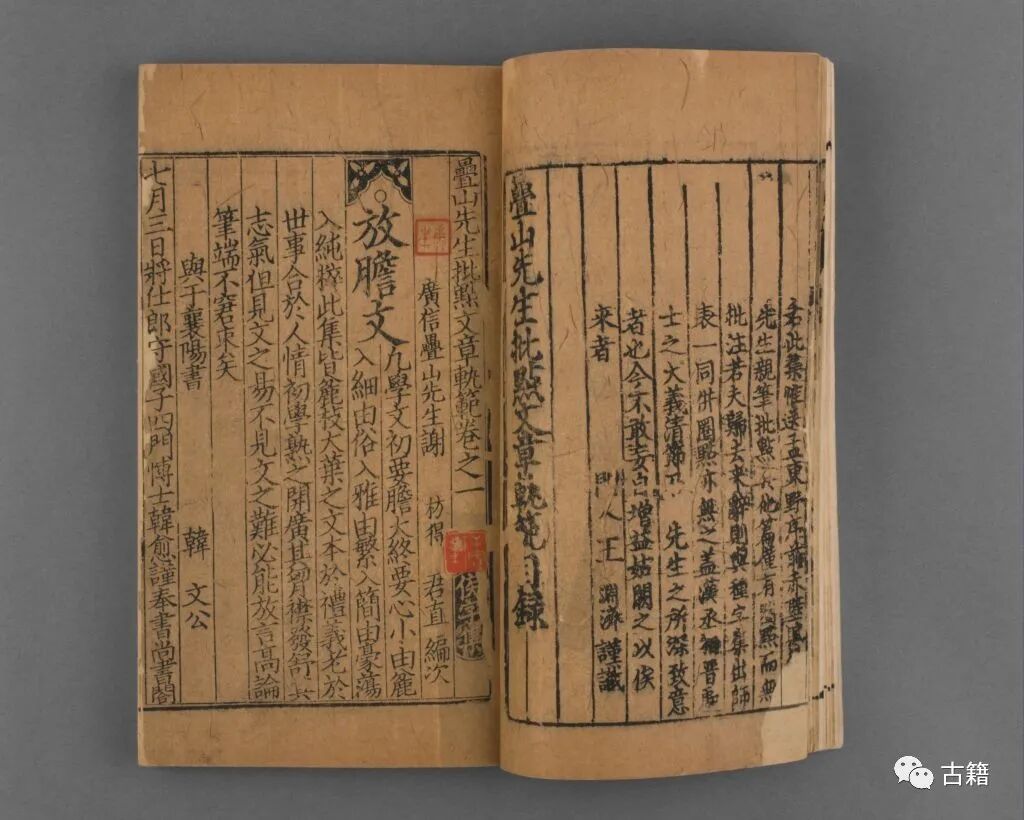 右此集惟送孟東野序前赤壁賦
先生親筆批點其他篇僅有圈點而無
批注若夫歸去來辭則與種字集出師
表一同併圈點亦無之蓋漢丞相晉處
士之大義清節乃 先生之所深致意
者也今不敢妄自增益姑闕之以俟
來者 門人王淵濟謹識
疊山先生批點文章軌範目録
疊山先生批點文章軌範卷之一
廣信疊山先生謝 枋得 君直 編次
放膽文 凡學文初要膽大終要心小由麄
入細由俗入雅由繁入簡由豪蕩
入純粹此集皆麄枝大葉之文本於禮義老於
世事合於人情初學熟之開廣其胷襟發舒其
志氣但見文之易不見文之難必能放言高論
筆端不窘束矣
與于襄陽書 韓文公
七月三日將仕郎守國子四門博士韓愈謹奉書尚書閤
古籍